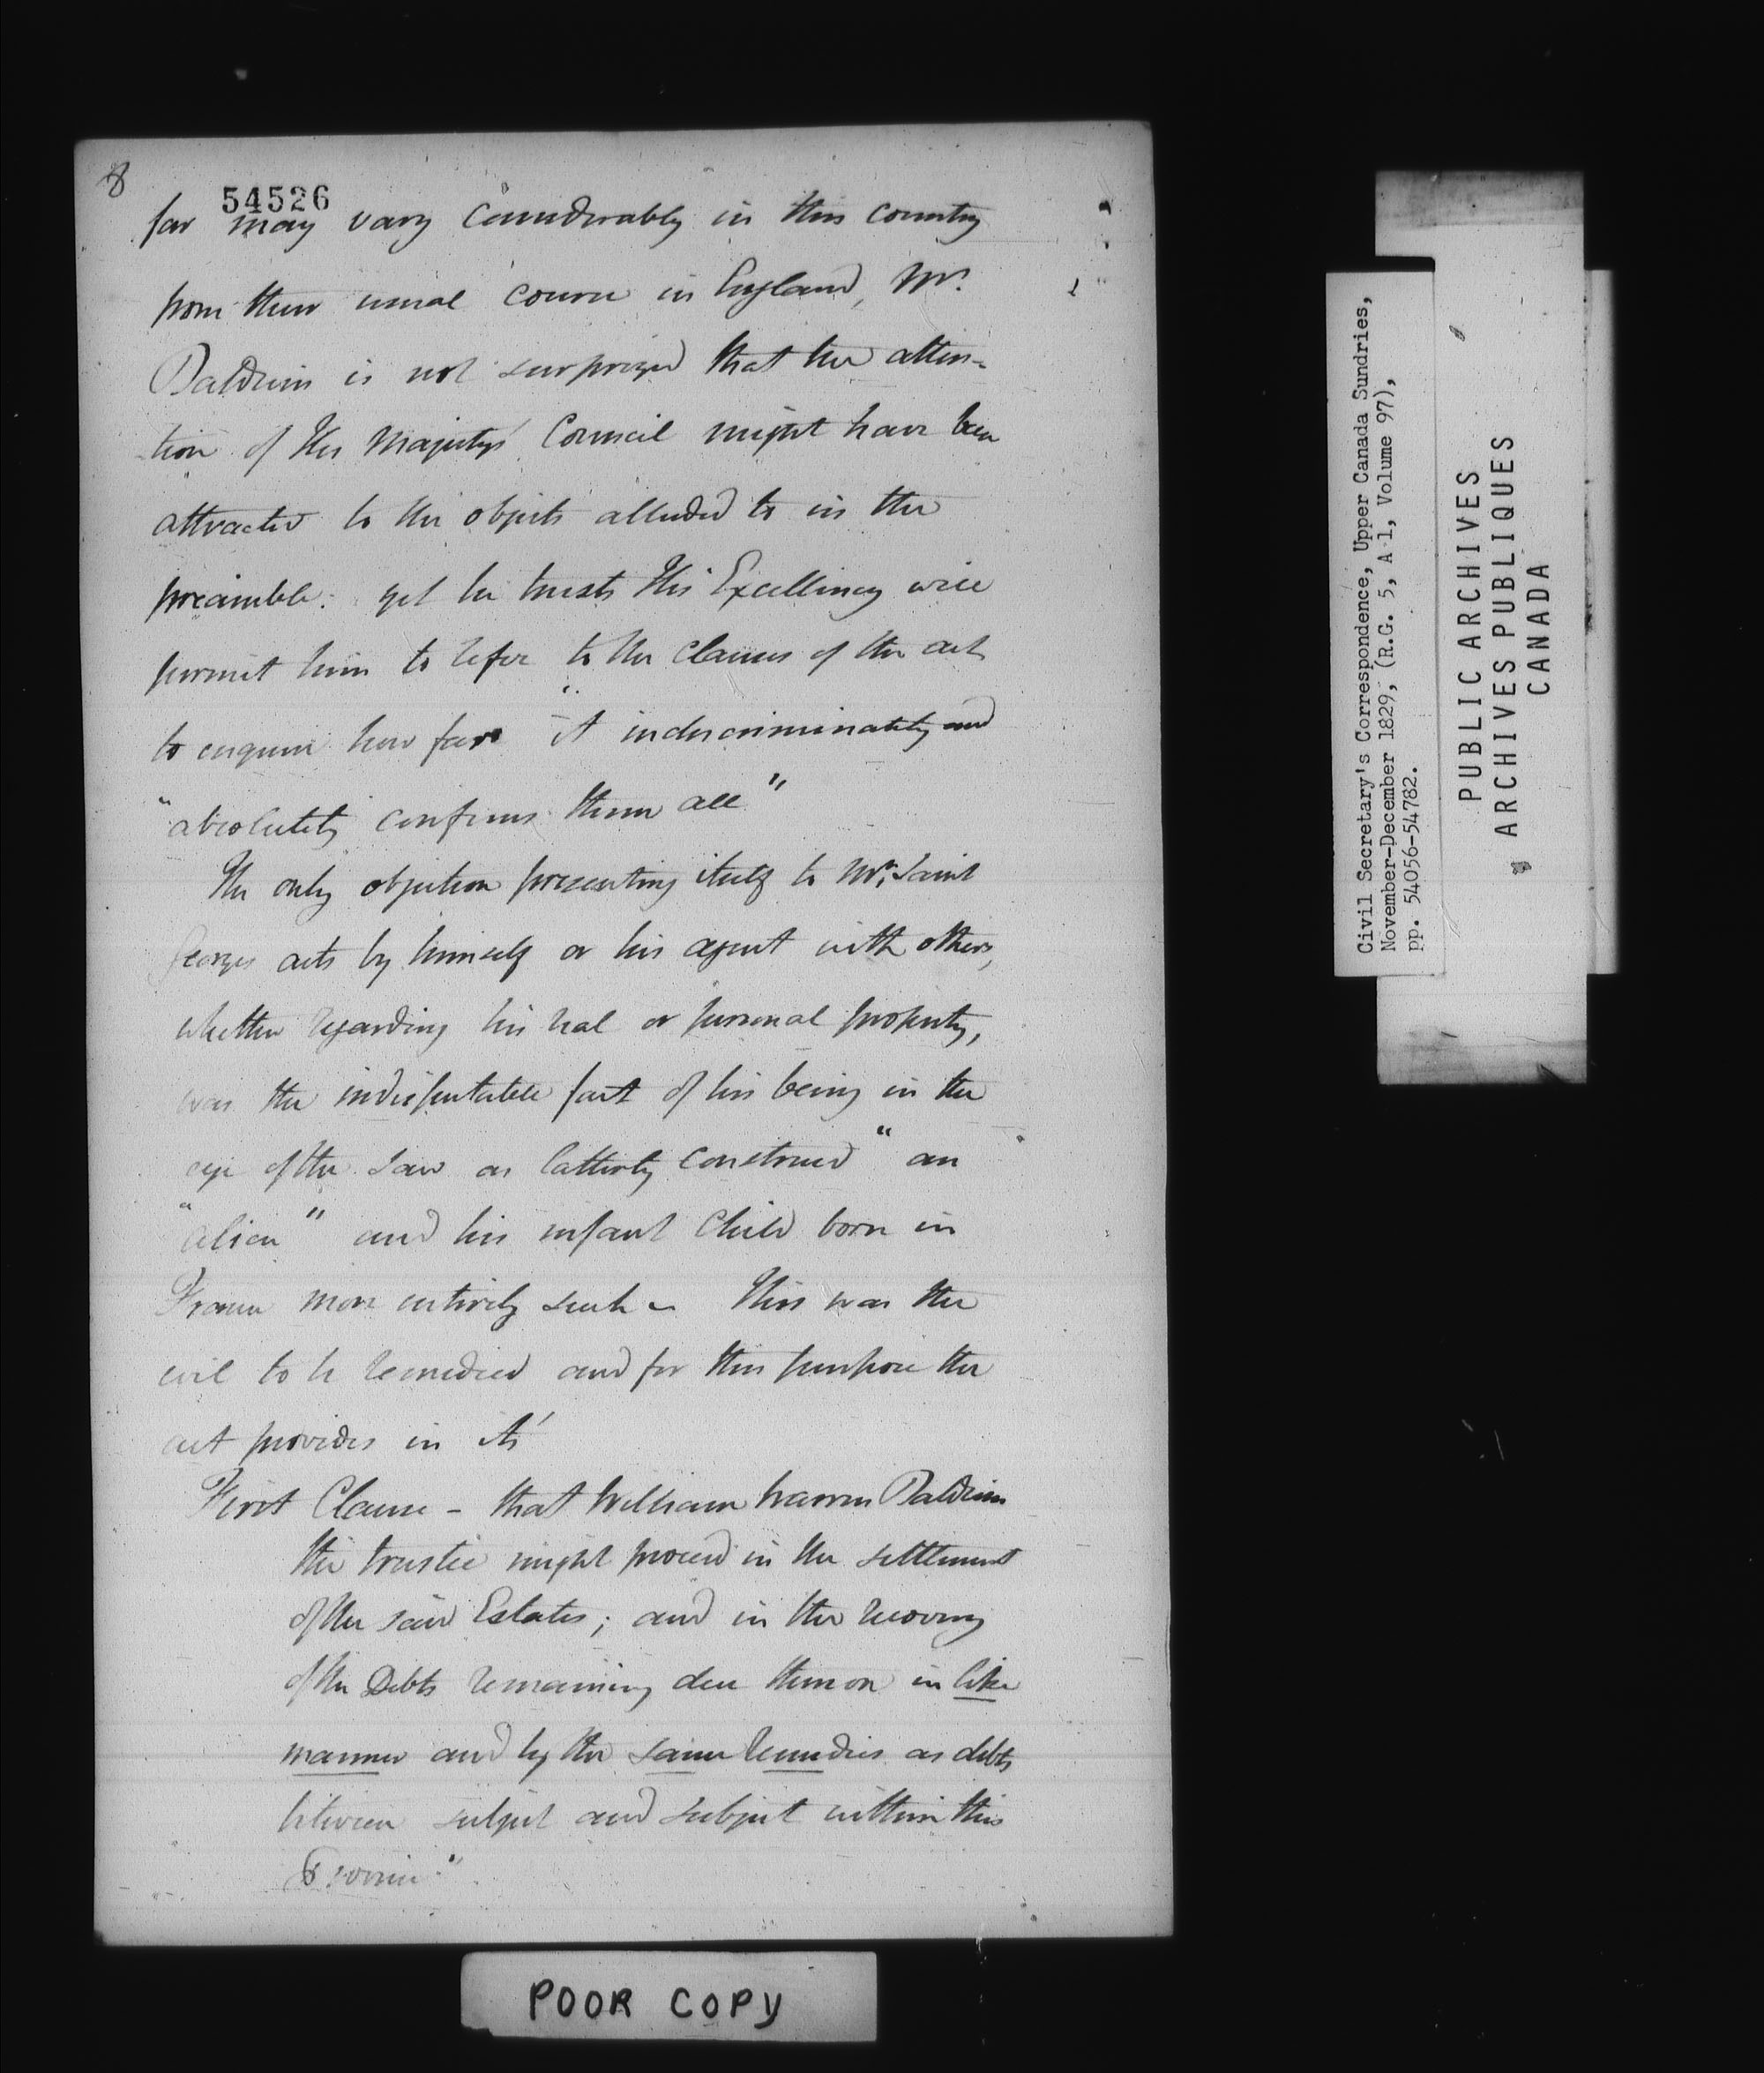 8
54526
far may vary considerably in this country
from their usual course in England, Mr.
Baldwin is not surprized that the atten-
tion of His Majesty's Council might have been
attracted to the objects alluded to in the
preamble: yet he trusts His Excellency will
permit him to refer to the clauses of the act
to enquire how far "it indiscriminately and
"absolutely confirms them all"
The only objection presenting itself to Mr. Saint
Georges acts by himself or his agent with others,
whether regarding his real or personal property,
was the indisputable fact of his being in the
eye of the Law as latterly construed "an
"alien" and his infant Child born in
France more entirely such - This was the
evil to be remedied and for this purpose the
act provides in it's
First Clause - that William Warren Baldwin
the trustee might proceed in the settlement
of the said Estates; and in the recovery
of the Debts remaining due thereon in like
manner and by the same remedies as debts
between subject and subject within this
Province."
POOR COPY
Civil Secretary's Correspondence, Upper Canada Sundries,
November-December 1829, (R.G. 5, A 1, Volume 97),
pp. 54056-54782.
PUBLIC ARCHIVES
ARCHIVES PUBLIQUES
CANADA